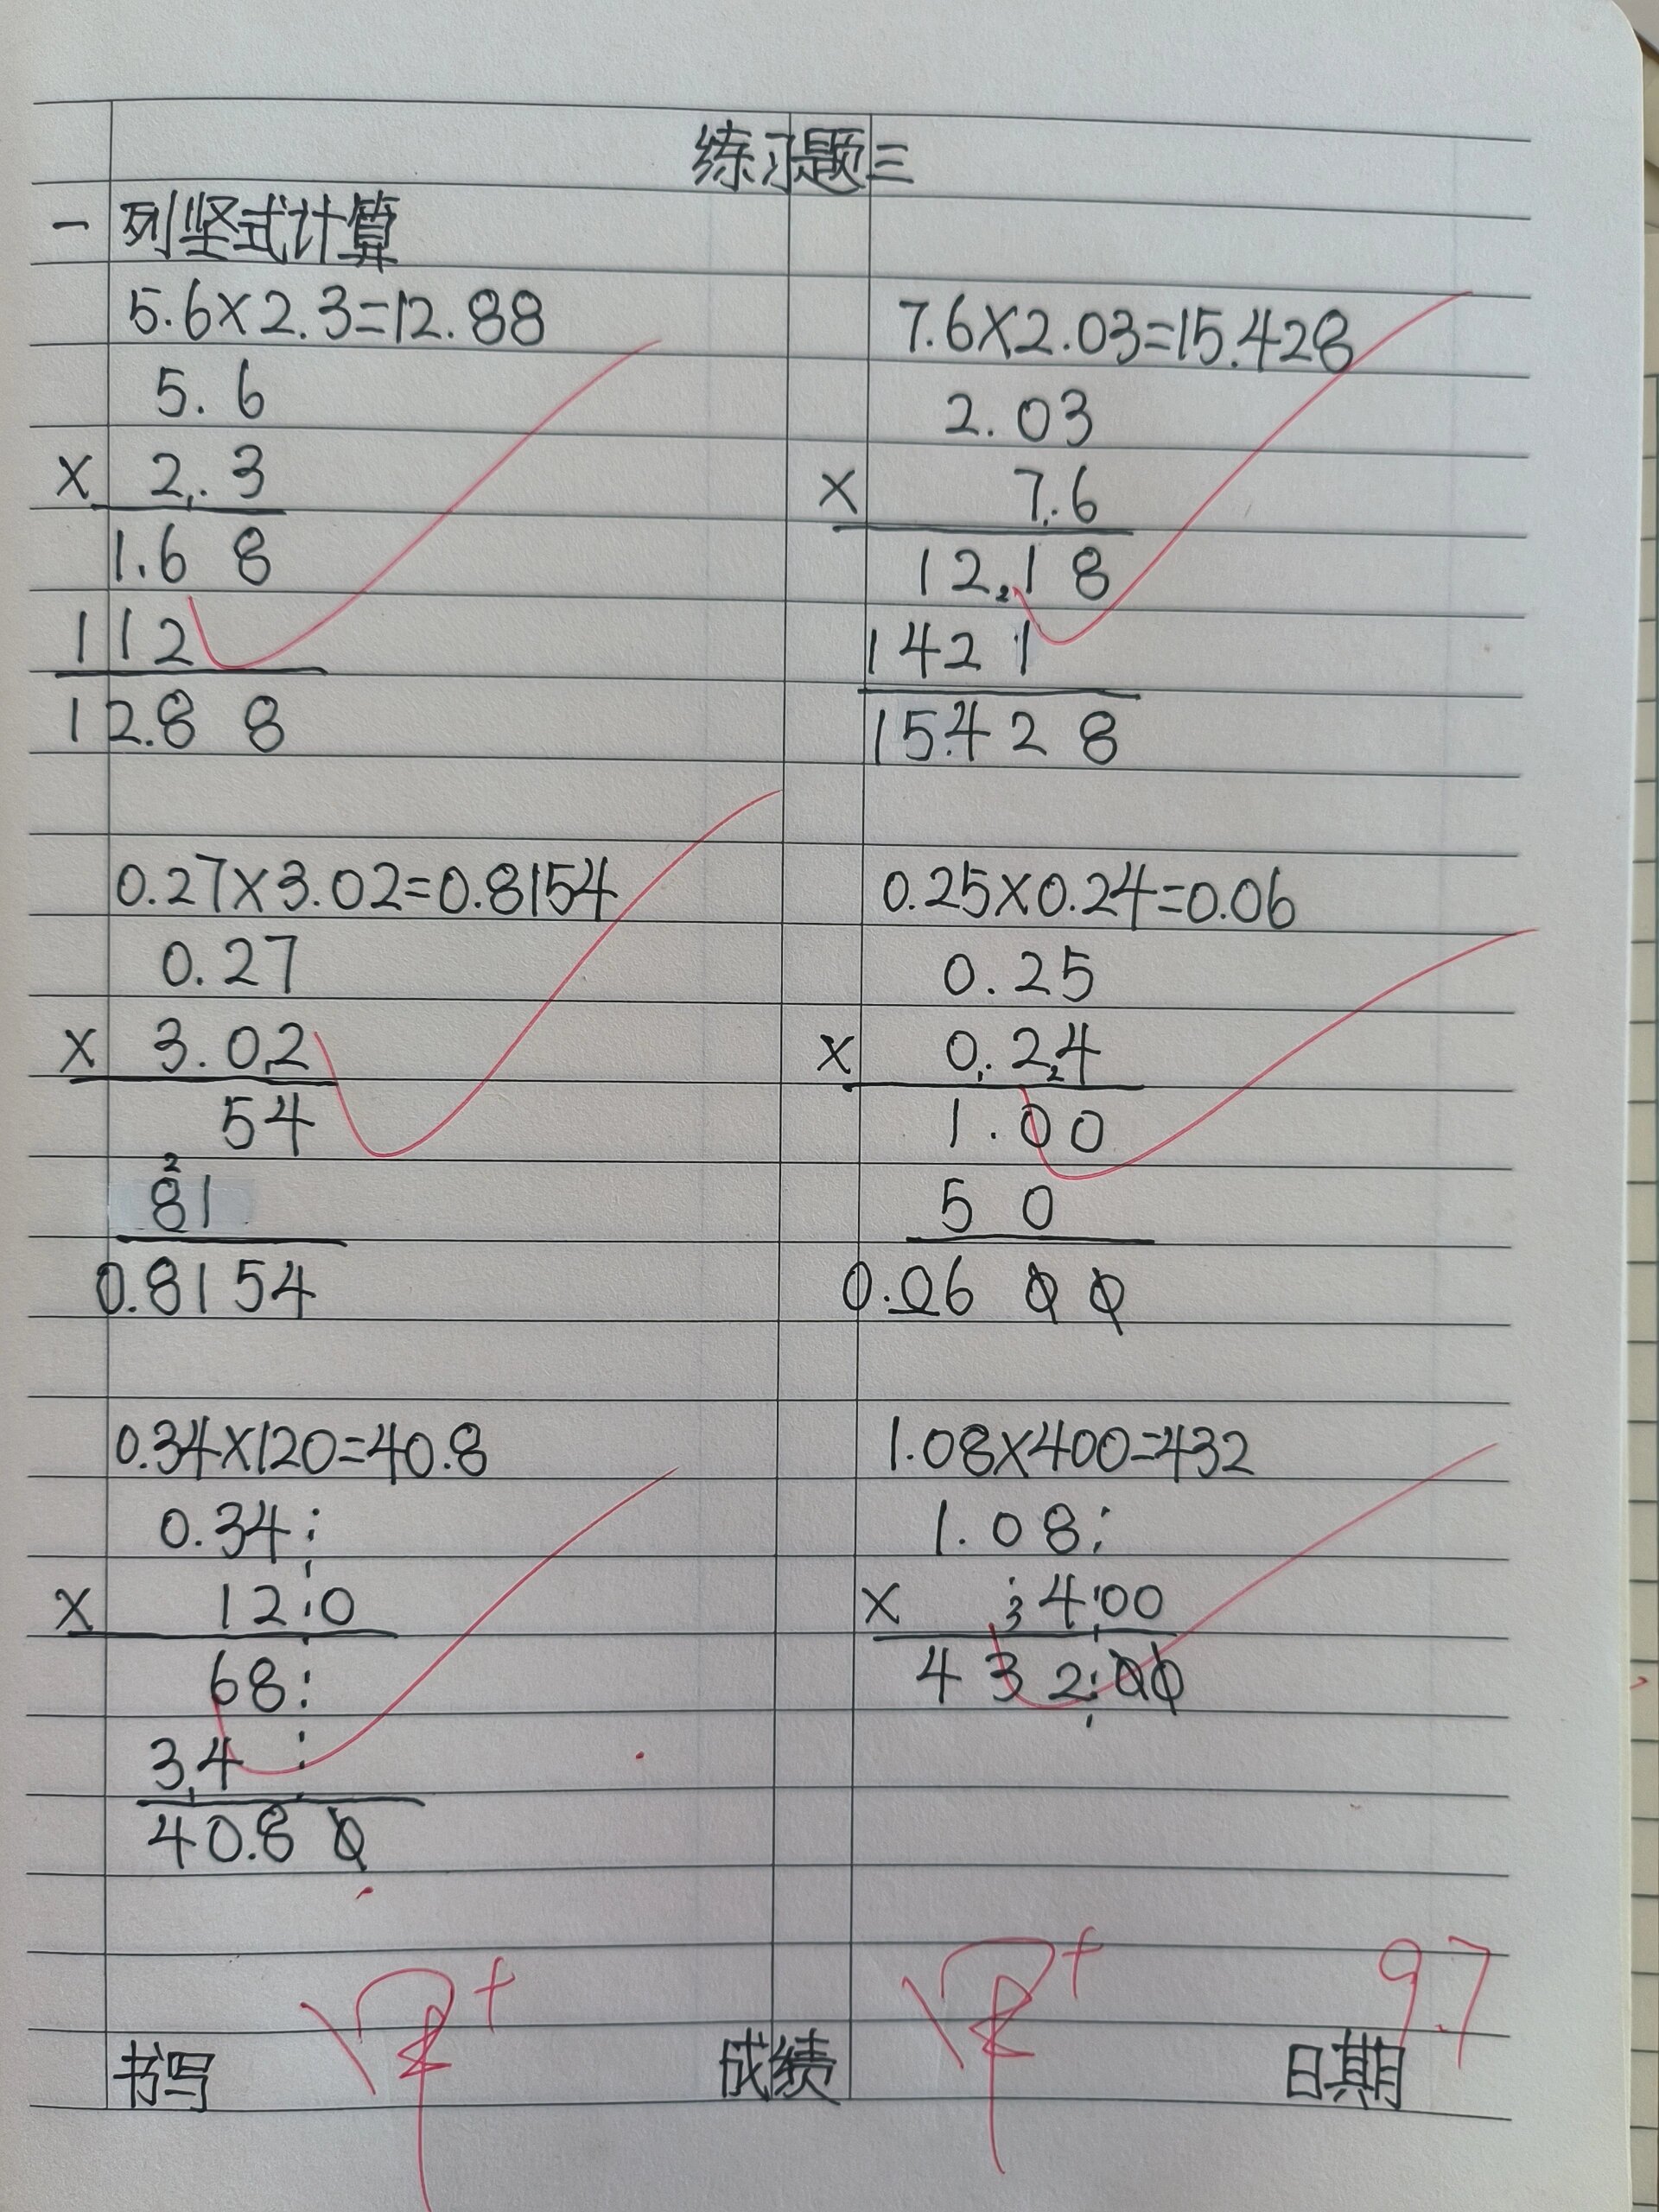 练习题三
一 列竖式计算
5.6×2.3=12.88
5.6
× 2.3
1.6 8
112
12.8 8
7.6×2.03=15.428
2.03
× 7.6
12.1 8
142 1
15.4 2 8
0.27×3.02=0.8154
0.27
× 3.02
54
81
0.8154
0.25×0.24=0.06
0.25
× 0.24
1.00
5 0
0.06 0 0
0.34×120=40.8
0.34
× 120
68
34
40.8 0
1.08×400=432
1.08
× 400
4 3 2 00
书写 成绩 日期 9.7